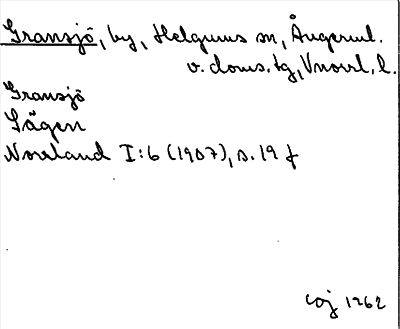 Gransjö, by, Helgums sn, Ångerml.
v. doms. tg, Vnorrl. l.
Gransjö
Sägen
Norrland I:6 (1907), s. 19 f
coj 1262